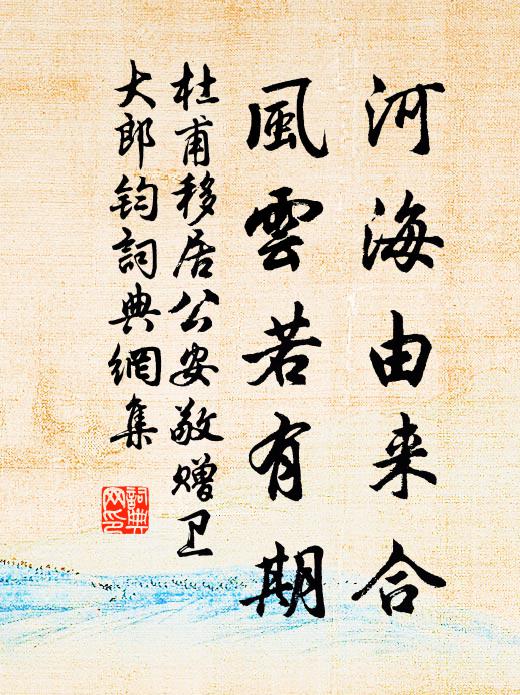 河海由来合
風雲若有期
杜甫移居公安敬贈卫
大郎鈞詞典網集
詞典
网印